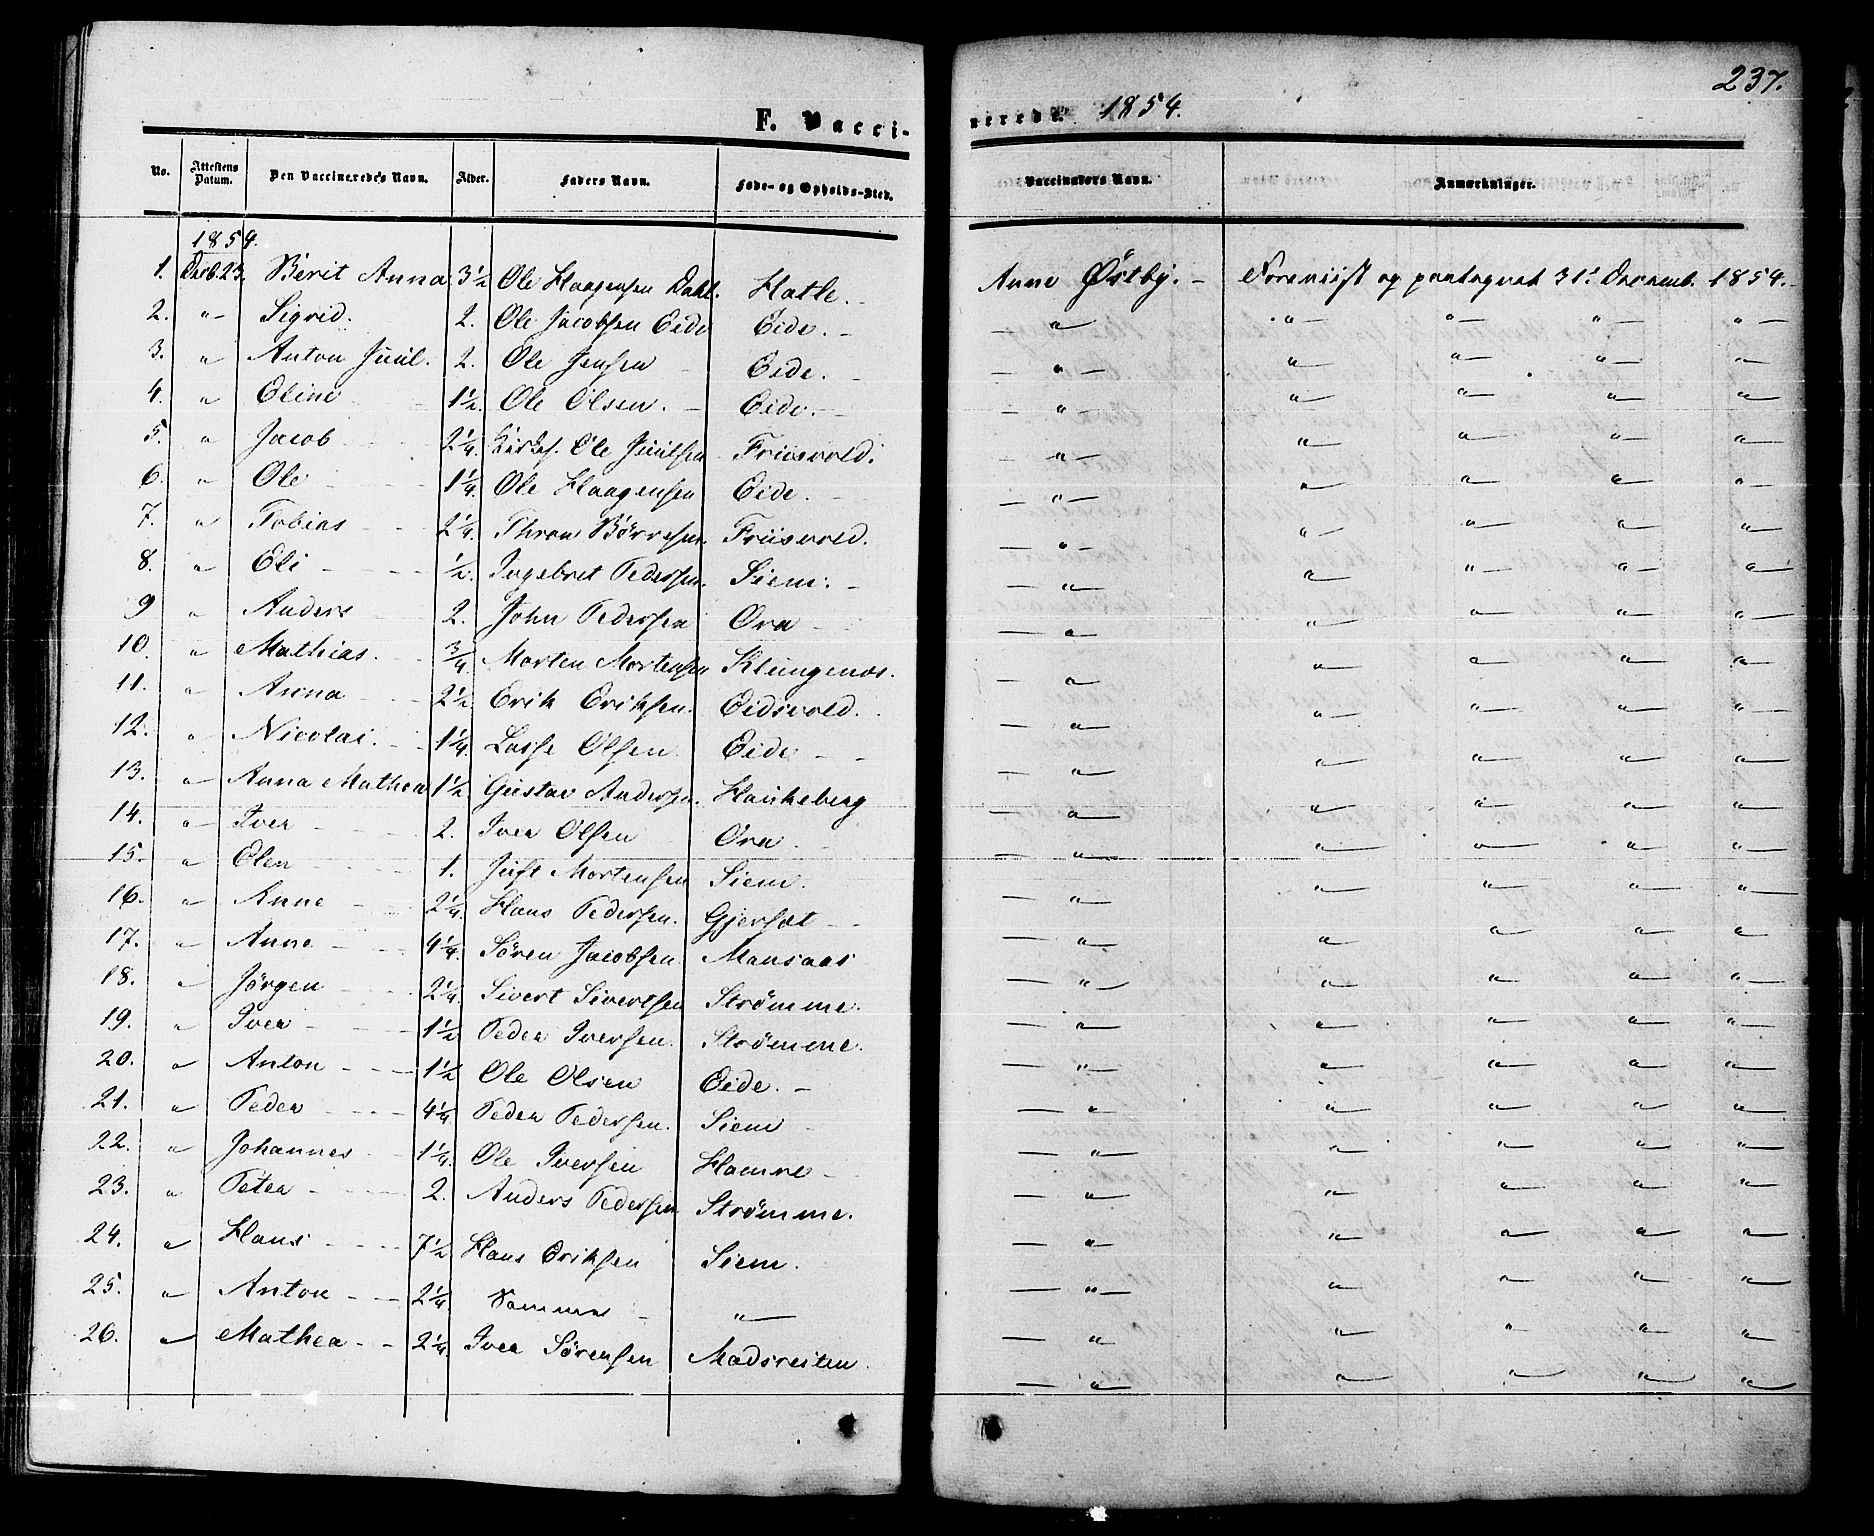 237.
F. Vaccinerede. 1854.
No. Attestens Datum. Den Vaccineredes Navn. Alder. Faders Navn. Føde- og Opholds-Sted. Vaccinators Navn. Anmærkninger.
1854.
1. Decb. 23. Berit Anna 3½ Ole Haagensen Dahl. Hatle. Anne Østby. — Foreviist og paategnet 31te Decemb. 1854.
2. " Sigrid. 2. Ole Jacobsen Eide Eide. — " — " — " — " — " —
3. " Anton Juul. 2. Ole Jensen Eide. — " — " — " — " — " —
4. " Eline 1½. Ole Olsen. Eide. — " — " — " — " — " —
5. " Jacob 2¼. Kirkes. Ole Juulsen Friisvold. — " — " — " — " — " —
6. " Ole 1¼. Ole Haagensen Eide. — " — " — " — " — " —
7. " Tobias 2¼. Thron Børresen. Friisvold. — " — " — " — " — " —
8. " Eli ½. Ingebret Pedersen. Siem. — " — " — " — " — " —
9 " Anders 2. John Pedersen Ora — " — " — " — " — " —
10. " Mathias. ¾. Morten Mortensen Klungenæs. — " — " — " — " — " —
11. " Anna 2½. Erik Eriksen. Eidsvold. — " — " — " — " — " —
12. " Nicolai. 1¼. Lasse Olsen Eide — " — " — " — " — " —
13. " Anna Mathea 1½. Gustav Andersen. Haukeberg — " — " — " — " — " —
14. " Iver 2. Iver Olsen Ora — " — " — " — " — " —
15. " Elen 1. Just Mortensen Siem. — " — " — " — " — " —
16. " Anne 2¼. Hans Pedersen. Gjersæt — " — " — " — " — " —
17. " Anne 4¼. Sören Jacobsen Mansaas — " — " — " — " — " —
18. " Jörgen 2¼. Sivert Sivertsen Strømme. — " — " — " — " — " —
19. " Iver 1½ Peder Iversen. Strømme. — " — " — " — " — " —
20. " Anton 1½ Ole Olsen Eide. — " — " — " — " — " —
21. " Peder 4¼. Peder Pedersen. Siem — " — " — " — " — " —
22. " Johannes 1¼. Ole Iversen Hamre — " — " — " — " — " —
23. " Peter 2. Anders Pedersen Strømme. — " — " — " — " — " —
24. " Hans 7½ Hans Eriksen Siem. — " — " — " — " — " —
25. " Anton 2¼. Samme " — " — " — " — " — " —
26. " Mathea 2¼. Iver Sørensen Madsreiten. — " — " — " — " — " —